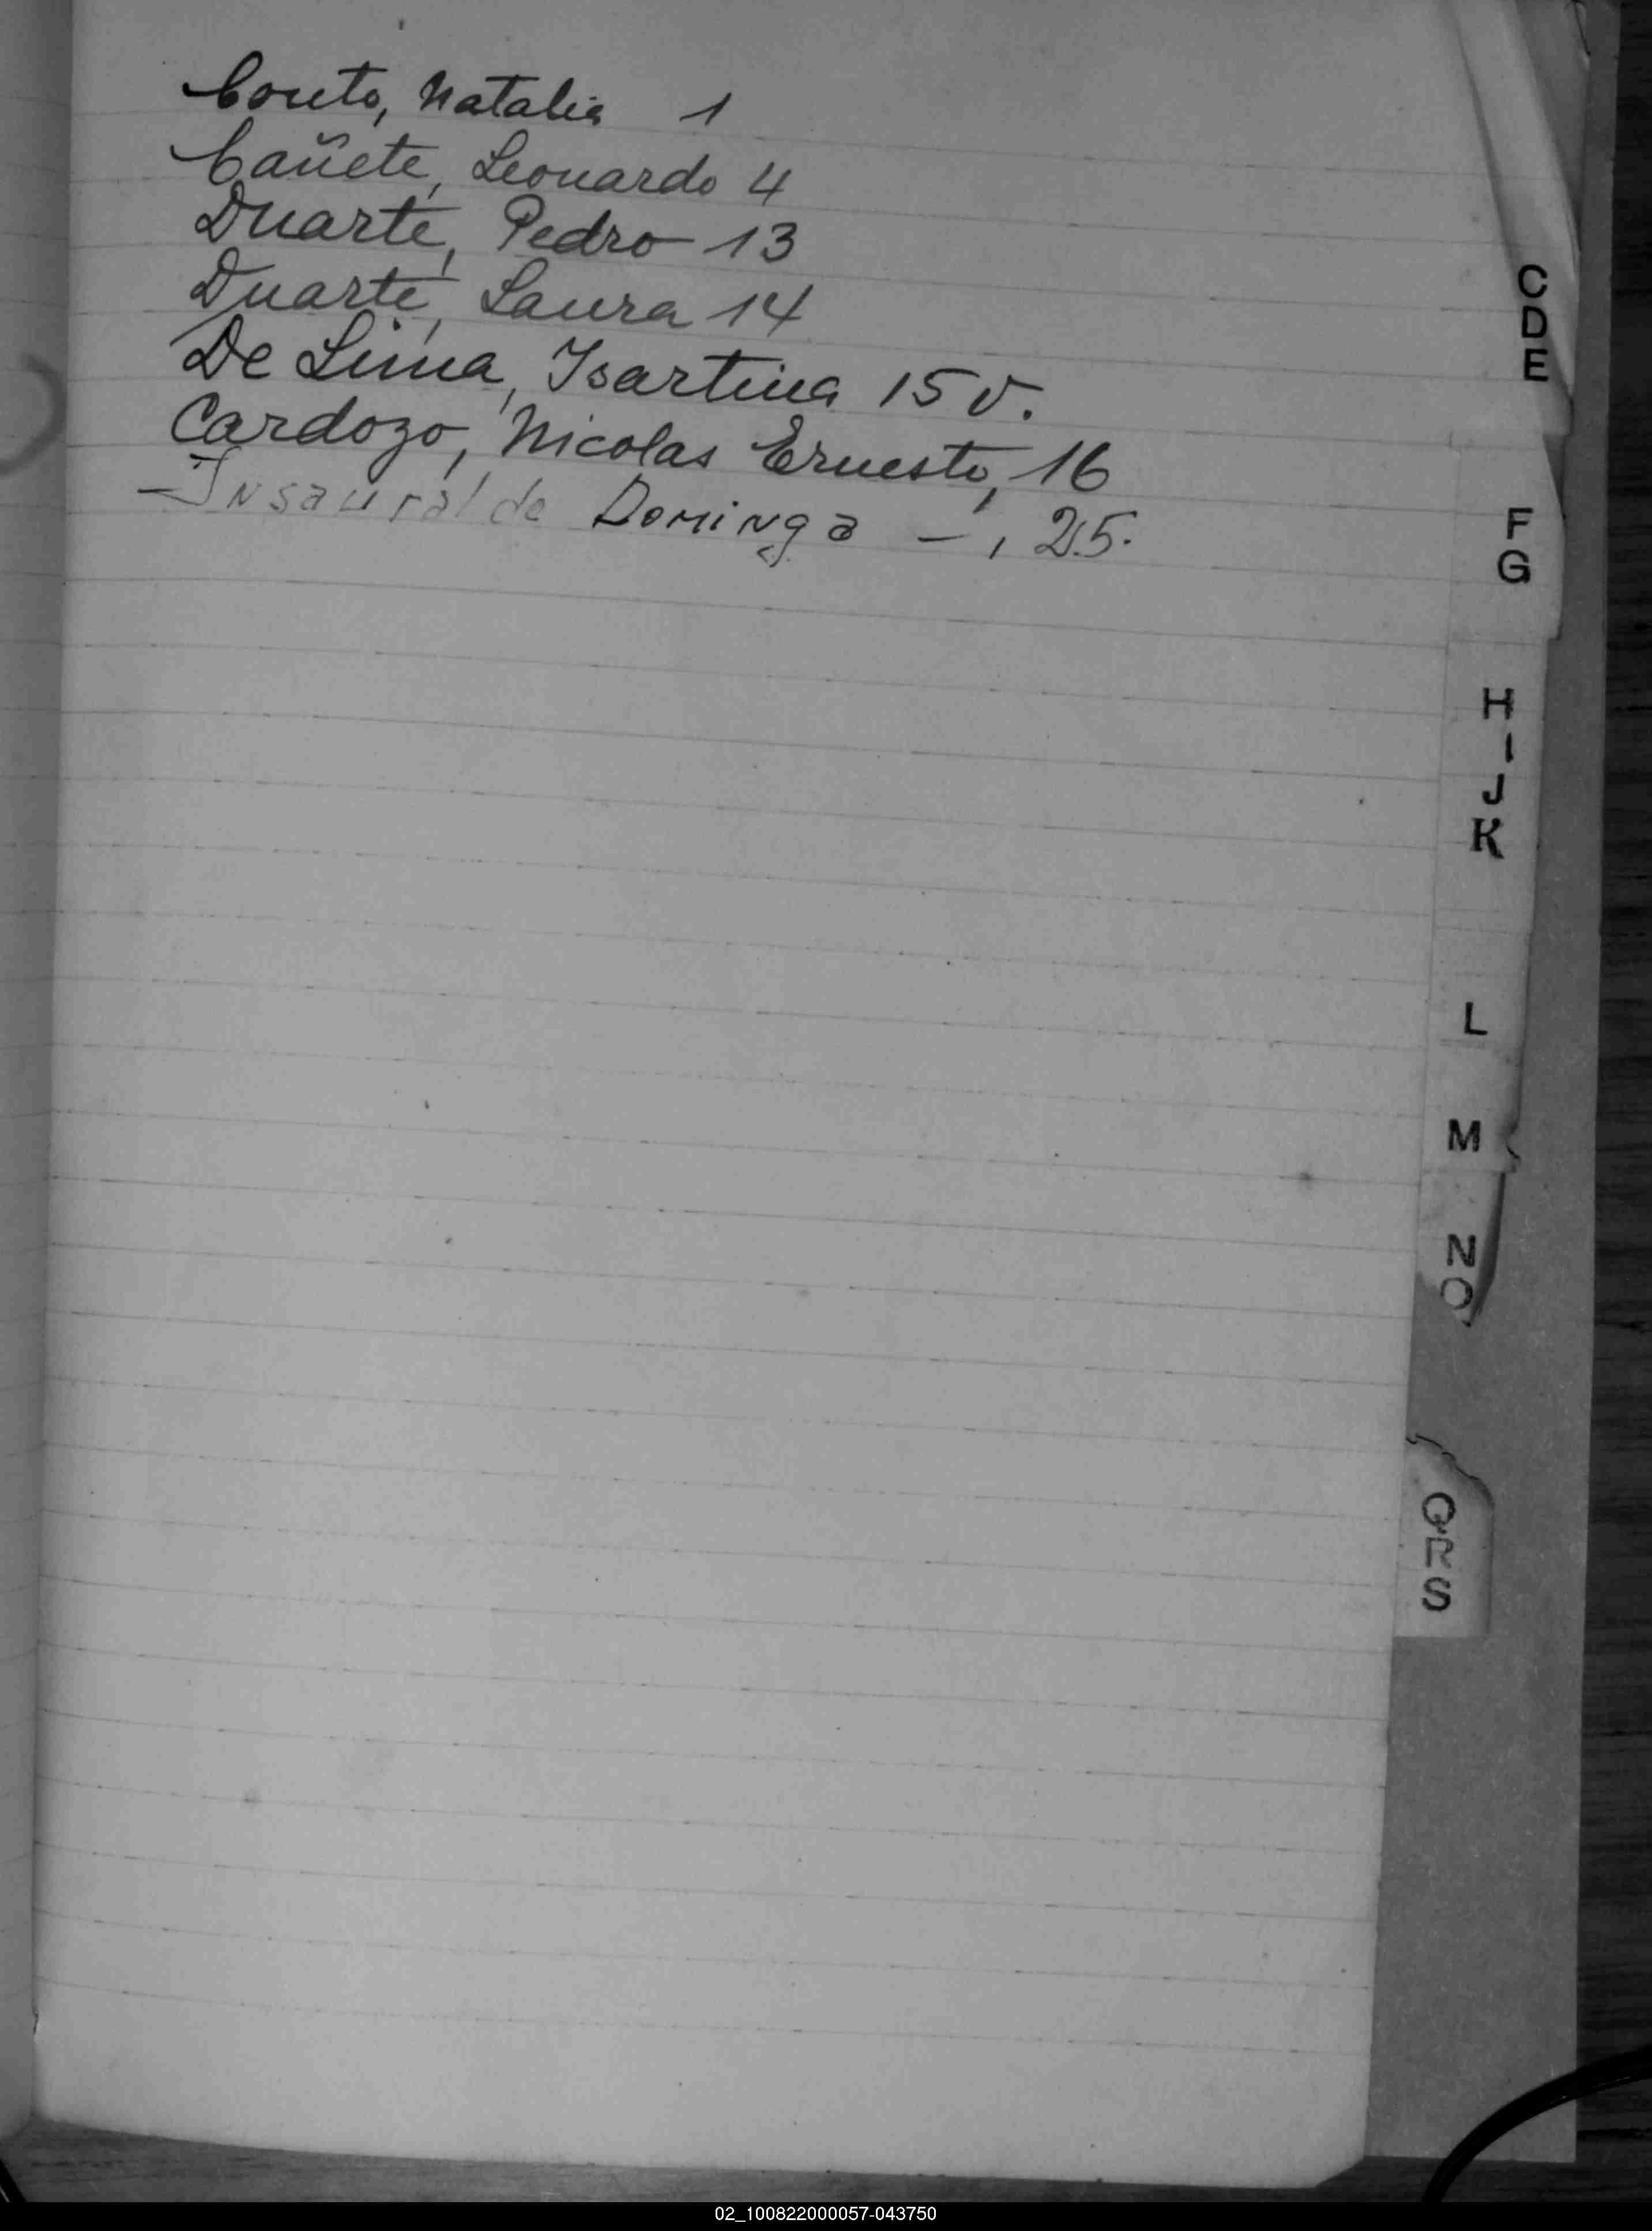 Couto, Natalia 1
Cañete, Leonardo 4
Duarte, Pedro 13
Duarte, Laura 14
De Lima, Isartina 15 v.
Cardozo, Nicolas Ernesto, 16
Insauralde Dominga - , 25.
C
D
E
F
G
H
I
J
K
L
M
N
O
Q
R
S
02_100822000057-043750